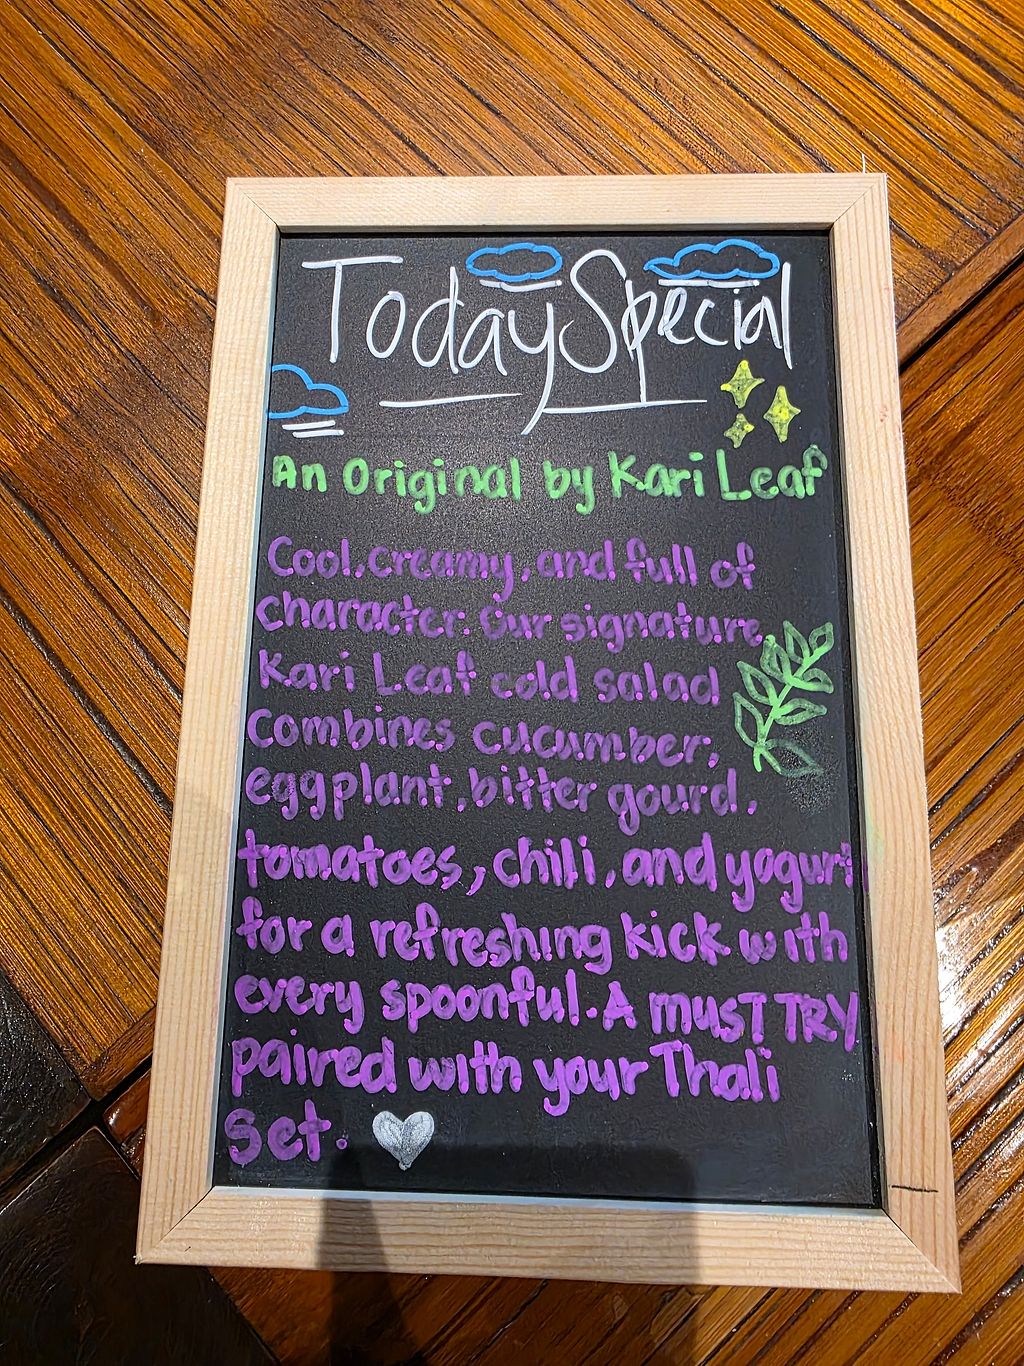 Today Special
An Original by Kari Leaf
Cool, creamy, and full of
character. Our signature
Kari Leaf cold salad
Combines cucumber,
eggplant, bitter gourd,
tomatoes, chili, and yogurt
for a refreshing kick with
every spoonful. A musT TRY
paired with your Thali
Set.